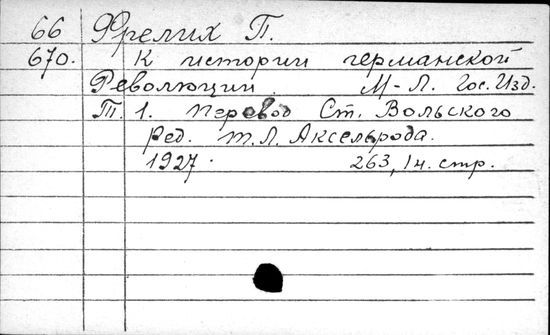 66 Фрелих П.
670. К истории германской
Революции. М-Л. Гос. Изд.
Т. 1. Перевод Ст. Вольского
Ред. Т. Л. Аксельрода.
1927. 263, 1 н. стр.